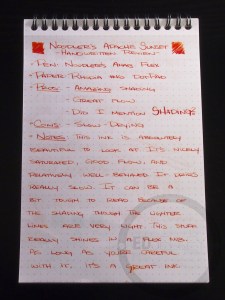 Noodler's Apache Sunset
Handwritten Review
- Pen: Noodler's Ahab Flex
- Paper: Rhodia #16 DotPad
- Pros: - Amazing shading
- Great flow
- Did I mention SHADING?
- Cons: - Slow-Drying
- Notes: This ink is absolutely
beautiful to look at. It's nicely
saturated, good flow, and
relatively well behaved. It dries
really slow. It can be a
bit tough to read because of
the shading, though the lighter
lines are very light. This stuff
really shines in a flex nib.
As long as you're careful
with it, it's a great ink.